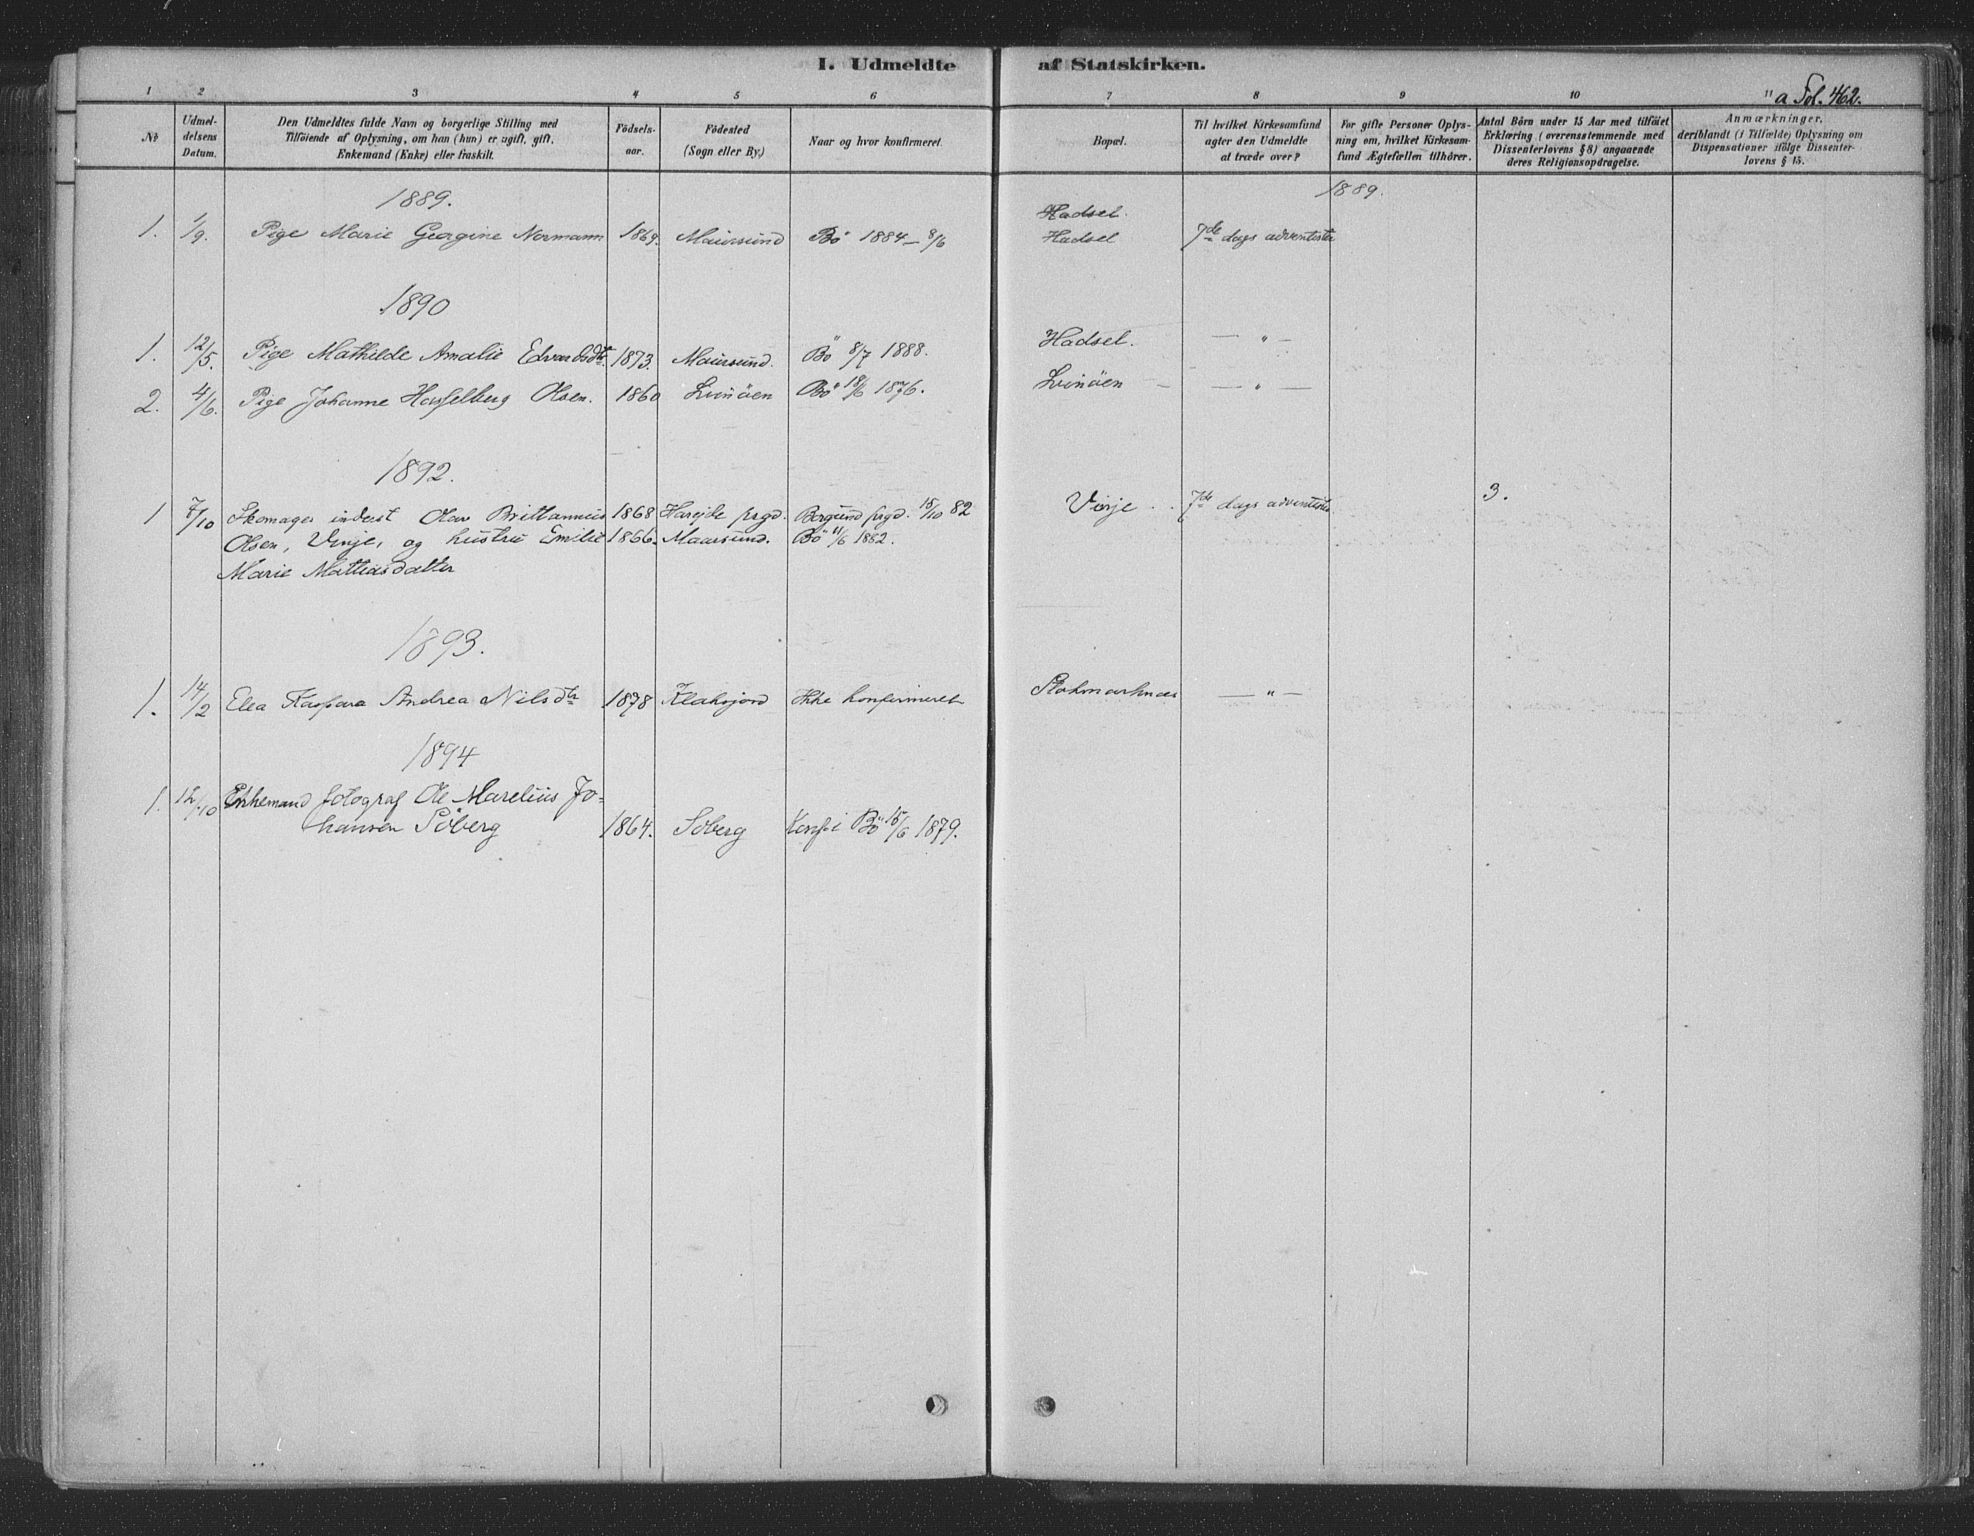 I. Udmeldte af Statskirken.
a Fol. 462.
1 2 3 4 5 6 7 8 9 10 11
No
Udmel-
delsens
Datum.
Den Udmeldtes fulde Navn og borgerlige Stilling med
Tilføiende af Oplysning, om han (hun) er ugift, gift,
Enkemand (Enke) eller fraskilt.
Födsels-
aar.
Födested
(Sogn eller By.)
Naar og hvor konfirmeret.
Bopæl.
Til hvilket Kirkesamfund
agter den Udmeldte
at træde over?
For gifte Personer Oplys-
ning om, hvilket Kirkesam-
fund Ægtefællen tilhører.
Antal Börn under 15 Aar med tilföiet
Erklæring (overensstemmende med
Dissenterlovens § 8) angaaende
deres Religionsopdragelse.
Anmærkninger,
deriblandt (i Tilfælde) Oplysning om
Dispensationer ifölge Dissenter-
lovens § 15.
1889. 1889.
Hadsel.
1. 1/9. Pige Marie Georgine Normann 1869. Maursund Bö 1884 - 8/6 Hadsel 7de dags adventister
1890
1. 12/5. Pige Mathilde Amalie Edvardsdtr. 1873. Maursund. Bö 8/7 1888. Hadsel. — " —
2. 4/6. Pige Johanne Hasselberg Olsen. 1860 Svinöen Bö 18/6 1876. Svinöen — — " —
1892.
1 7/10 Skomager inderst Olav Brittannius 1868 Harejde prgd. Borgund prgd. 15/10 82 Vinje . . 7de dags adventister 3.
Olsen, Vinje, og hustru Emilie 1866. Maursund. Bö 11/6 1882.
Marie Mathiasdatter
1893.
1. 14/2 Elea Kaspara Andrea Nilsdtr 1878 Klaksjord Ikke konfirmeret Stokmarknes — " —
1894
1. 12/10 Enkemand fotograf Ole Marelius Jo-
hansen Söberg 1864. Söberg Konf. i Bö 15/6 1879.